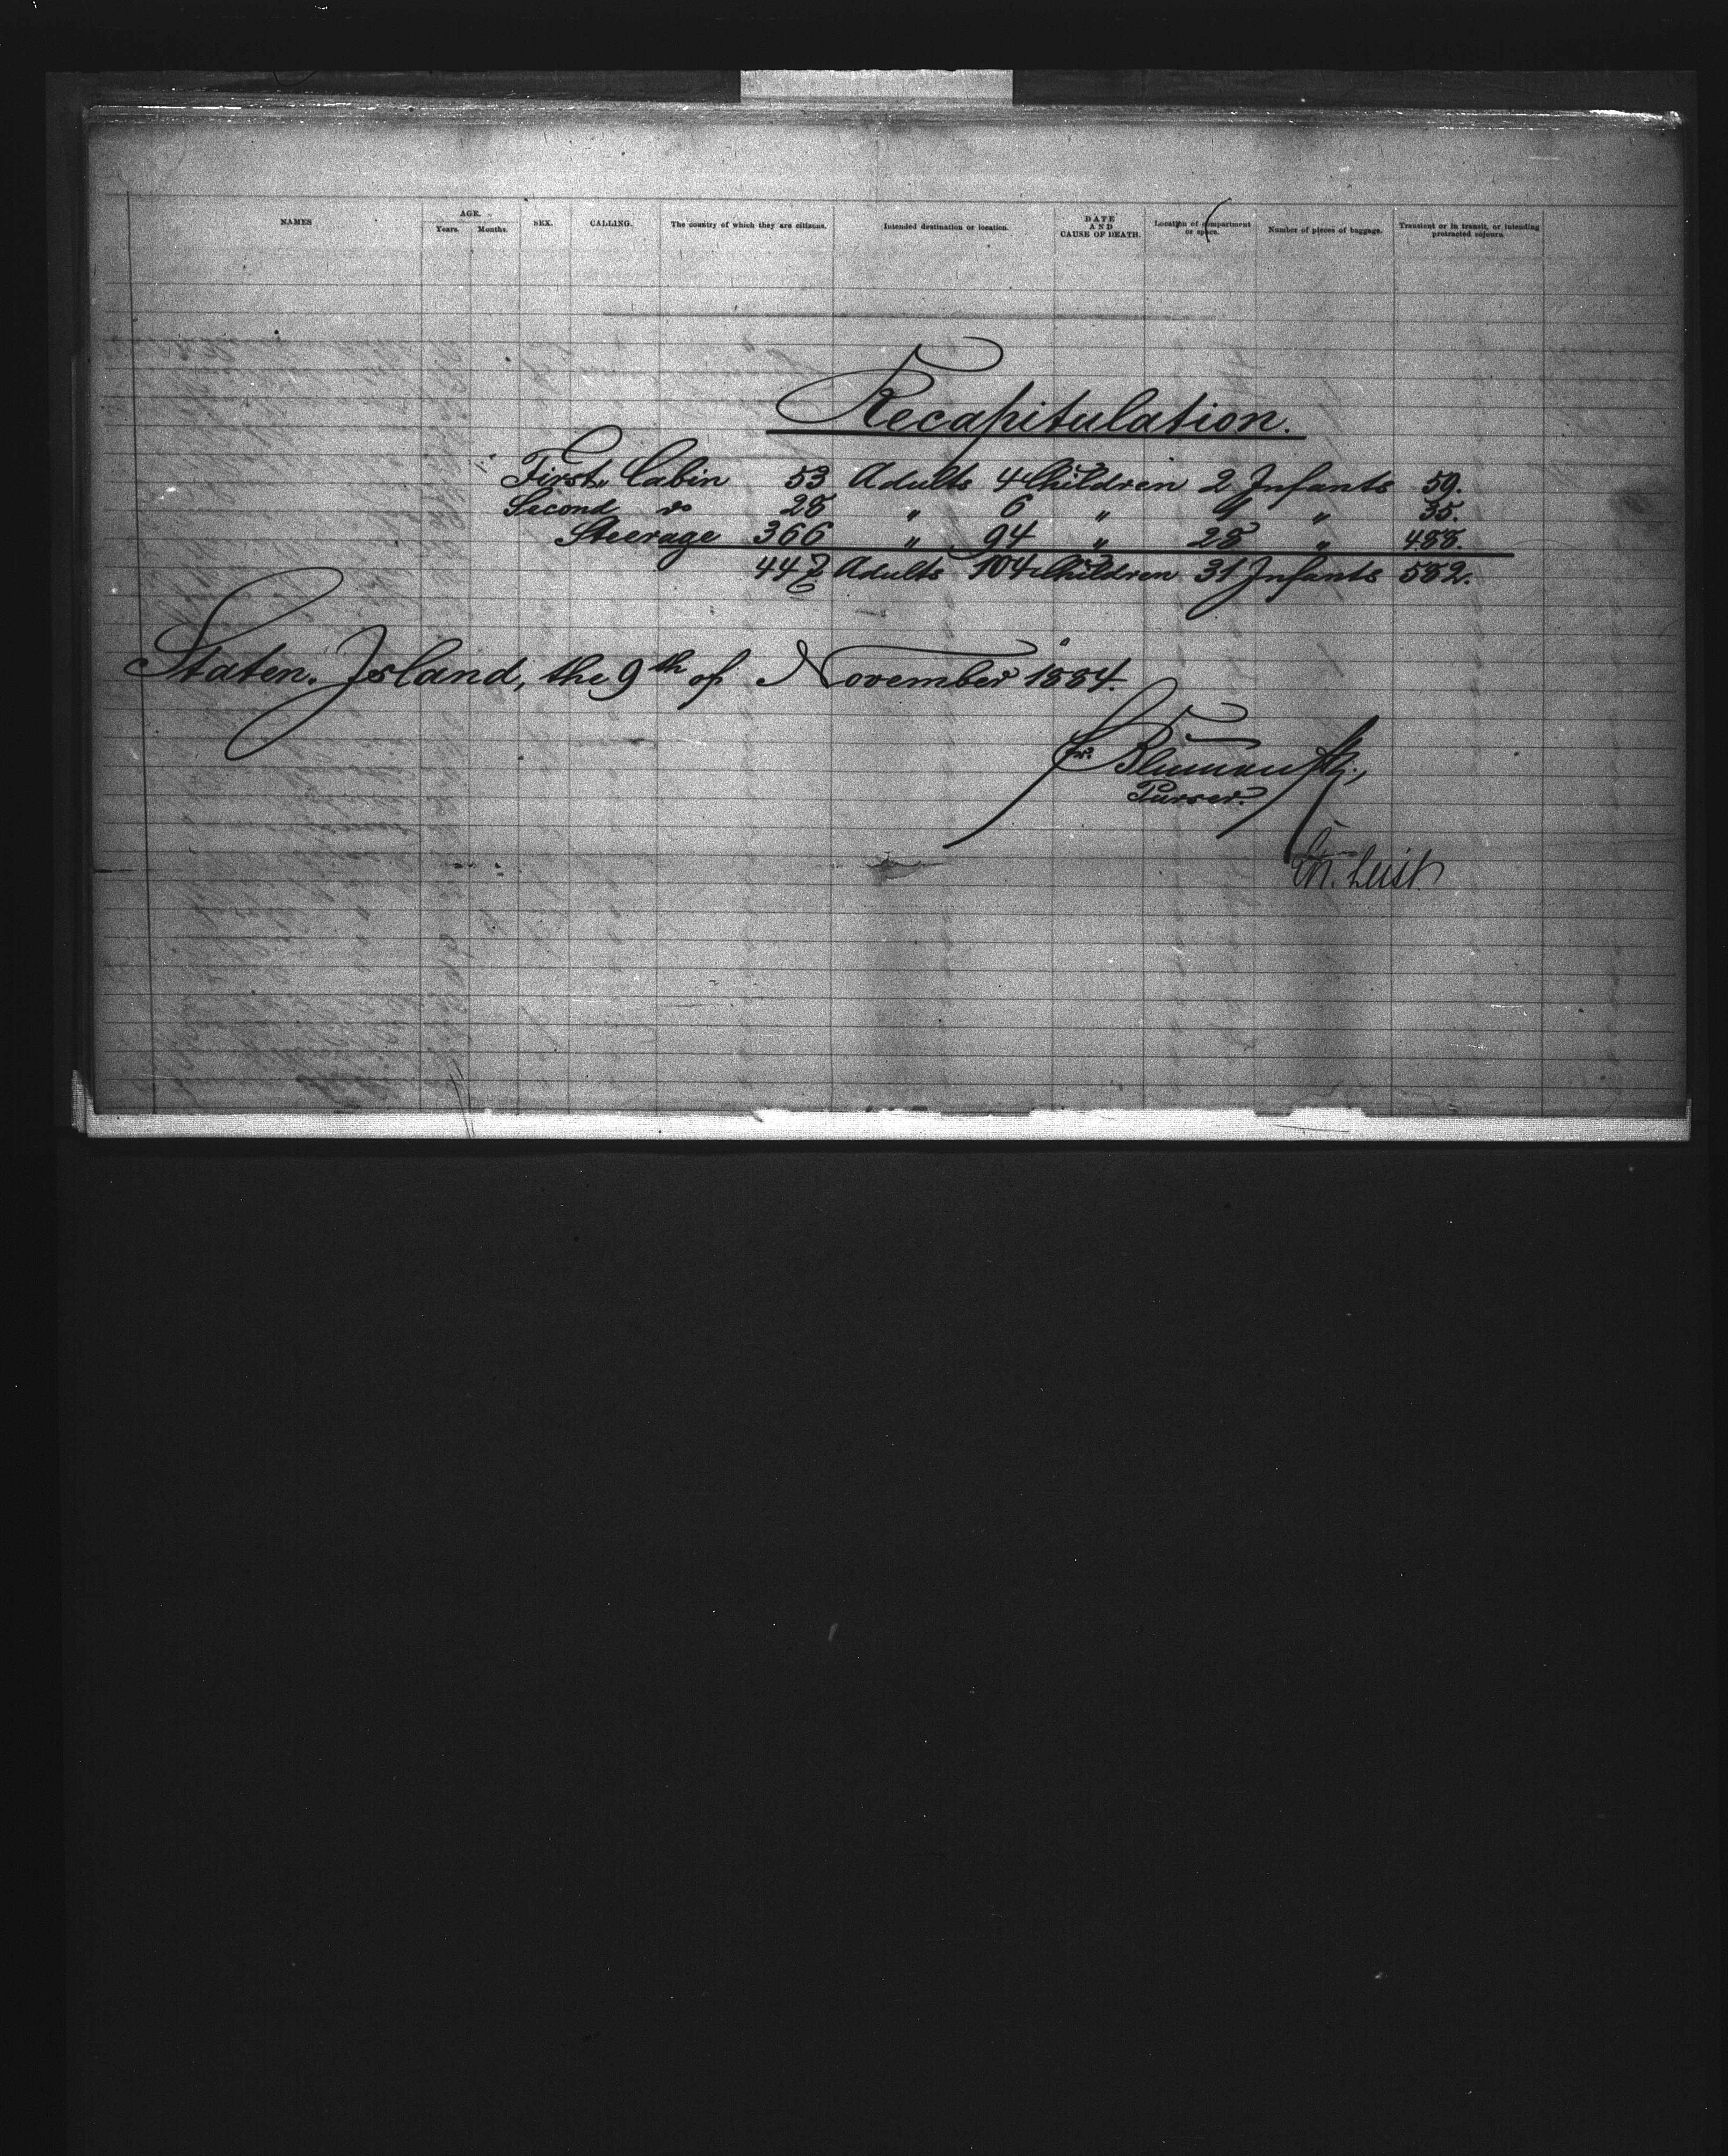 NAMES AGE. SEX. CALLING. The country of which they are citizens. Intended destination or location. DATE AND CAUSE OF DEATH. Location of compartment or space. Number of pieces of baggage. Transient or in transit, or intending protracted sejourn.
Years. Months.
Recapitulation.
First Cabin 53 Adults 4 Children 2 Infants 59.
Second do 28 " 6 " 1 " 35.
Steerage 366 " 94 " 28 " 488.
447 Adults 104 Children 31 Infants 582.
Staten Island, the 9th of November 1884.
Purser.
Leist